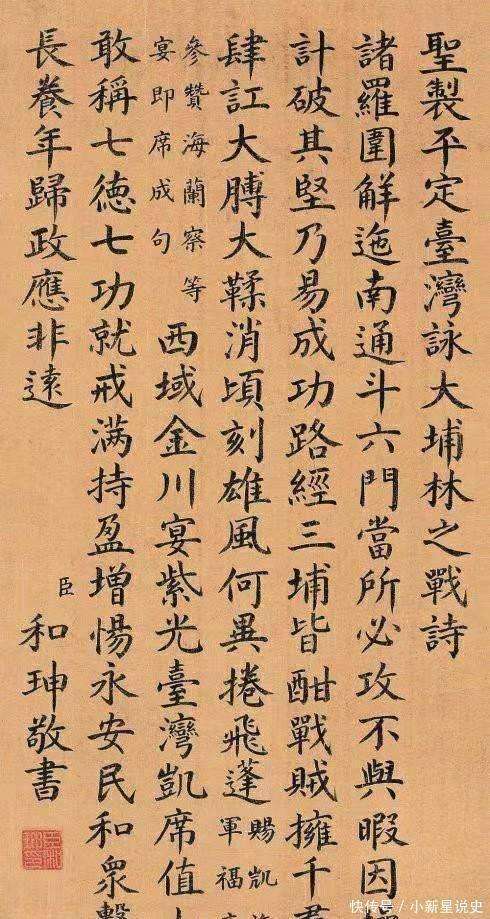 聖製平定臺灣詠大埔林之戰詩
諸羅圍解迤南通斗六門當所必攻不與暇因
計破其堅乃易成功路經三埔皆酣戰賊擁千
肆訌大膊大鞣消頃刻雄風何異捲飛蓬
賜凱
軍福
參贊海蘭察等
宴即席成句
西域金川宴紫光臺灣凱席值
敢稱七徳七功就戒满持盈增惕永安民和眾
長養年歸政應非遠
臣和珅敬書
快传号/小新星说史